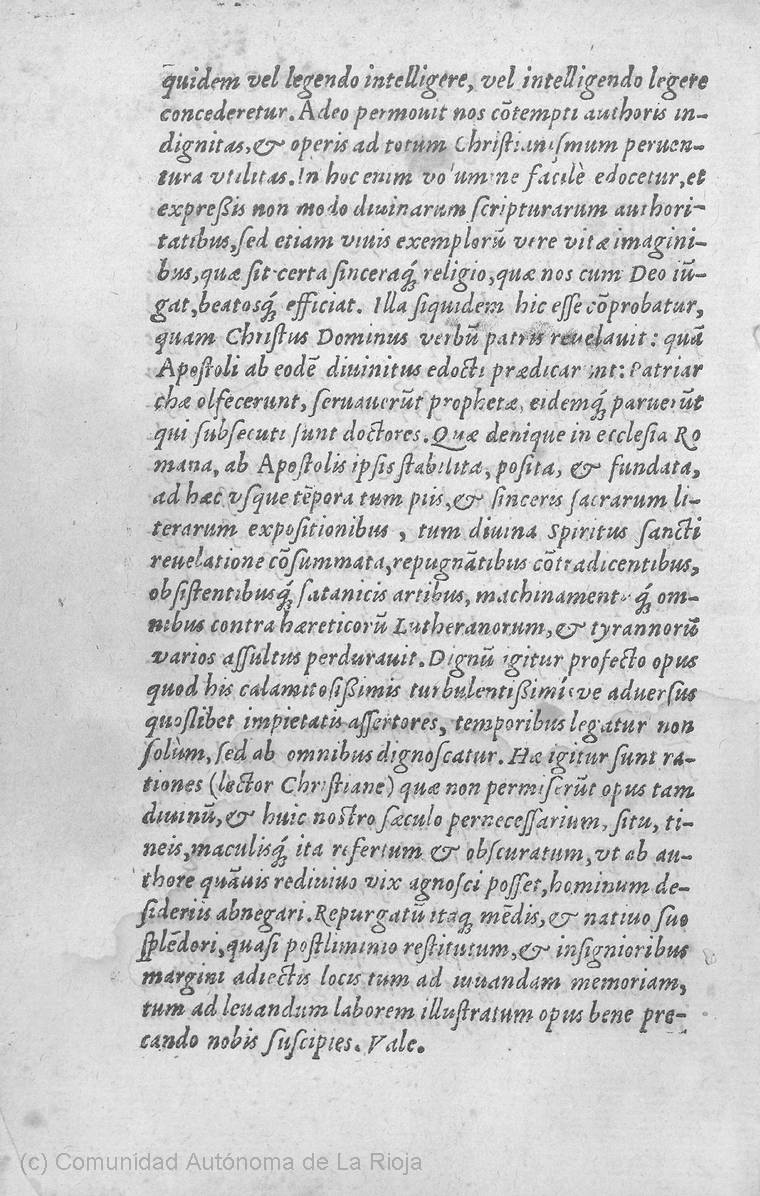 quidem vel legendo intelligere, vel intelligendo legere
concederetur. Adeo permouit nos cõtempti authoris in-
dignitas, & operis ad totum Christianismum peruen-
tura vtilitas. In hoc enim volumine facilè edocetur, et
expreßis non modo diuinarum scripturarum authori-
tatibus, sed etiam viuis exemplorũ vere vitæ imagini-
bus, quæ sit certa sinceraq́; religio, quæ nos cum Deo iũ-
gat, beatosq́; efficiat. Illa siquidem hic esse cõprobatur,
quam Christus Dominus verbũ patris reuelauit: quã
Apostoli ab eodẽ diuinitus edocti prædicarunt: Patriar
chæ olfecerunt, seruauerũt prophetæ, eidemq́; paruerũt
qui subsecuti sunt doctores. Quæ denique in ecclesia Ro
mana, ab Apostolis ipsis stabilita, posita, & fundata,
ad hæc vsque tẽpora tum piis, & sinceris sacrarum li-
terarum expositionibus, tum diuina Spiritus sancti
reuelatione cõsummata, repugnãtibus cõtradicentibus,
obsistentibusq́; satanicis artibus, machinamentisq́; om-
nibus contra hæreticorũ Lutheranorum, & tyrannorũ
varios assultus perdurauit. Dignũ igitur profecto opus
quod his calamitosißimis turbulentißimisve aduersus
quoslibet impietatis assertores, temporibus legatur non
solùm, sed ab omnibus dignoscatur. Hæ igitur sunt ra-
tiones (lector Christiane) quæ non permiserũt opus tam
diuinũ, & huic nostro sæculo pernecessarium, situ, ti-
neis, maculisq́; ita refertum & obscuratum, vt ab au-
thore quãuis rediuiuo vix agnosci posset, hominum de-
sideriis abnegari. Repurgatũ itaq; mẽdis, & natiuo suo
splẽdori, quasi postliminio restitutum, & insignioribus
margini adiectis locis tum ad iuuandam memoriam,
tum ad leuandum laborem illustratum opus bene pre-
cando nobis suscipies. Vale.
(c) Comunidad Autónoma de La Rioja